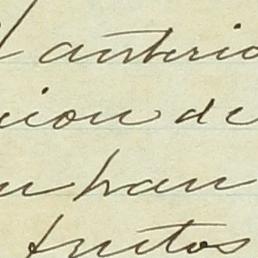 l anterio
cion de
n han
frutos